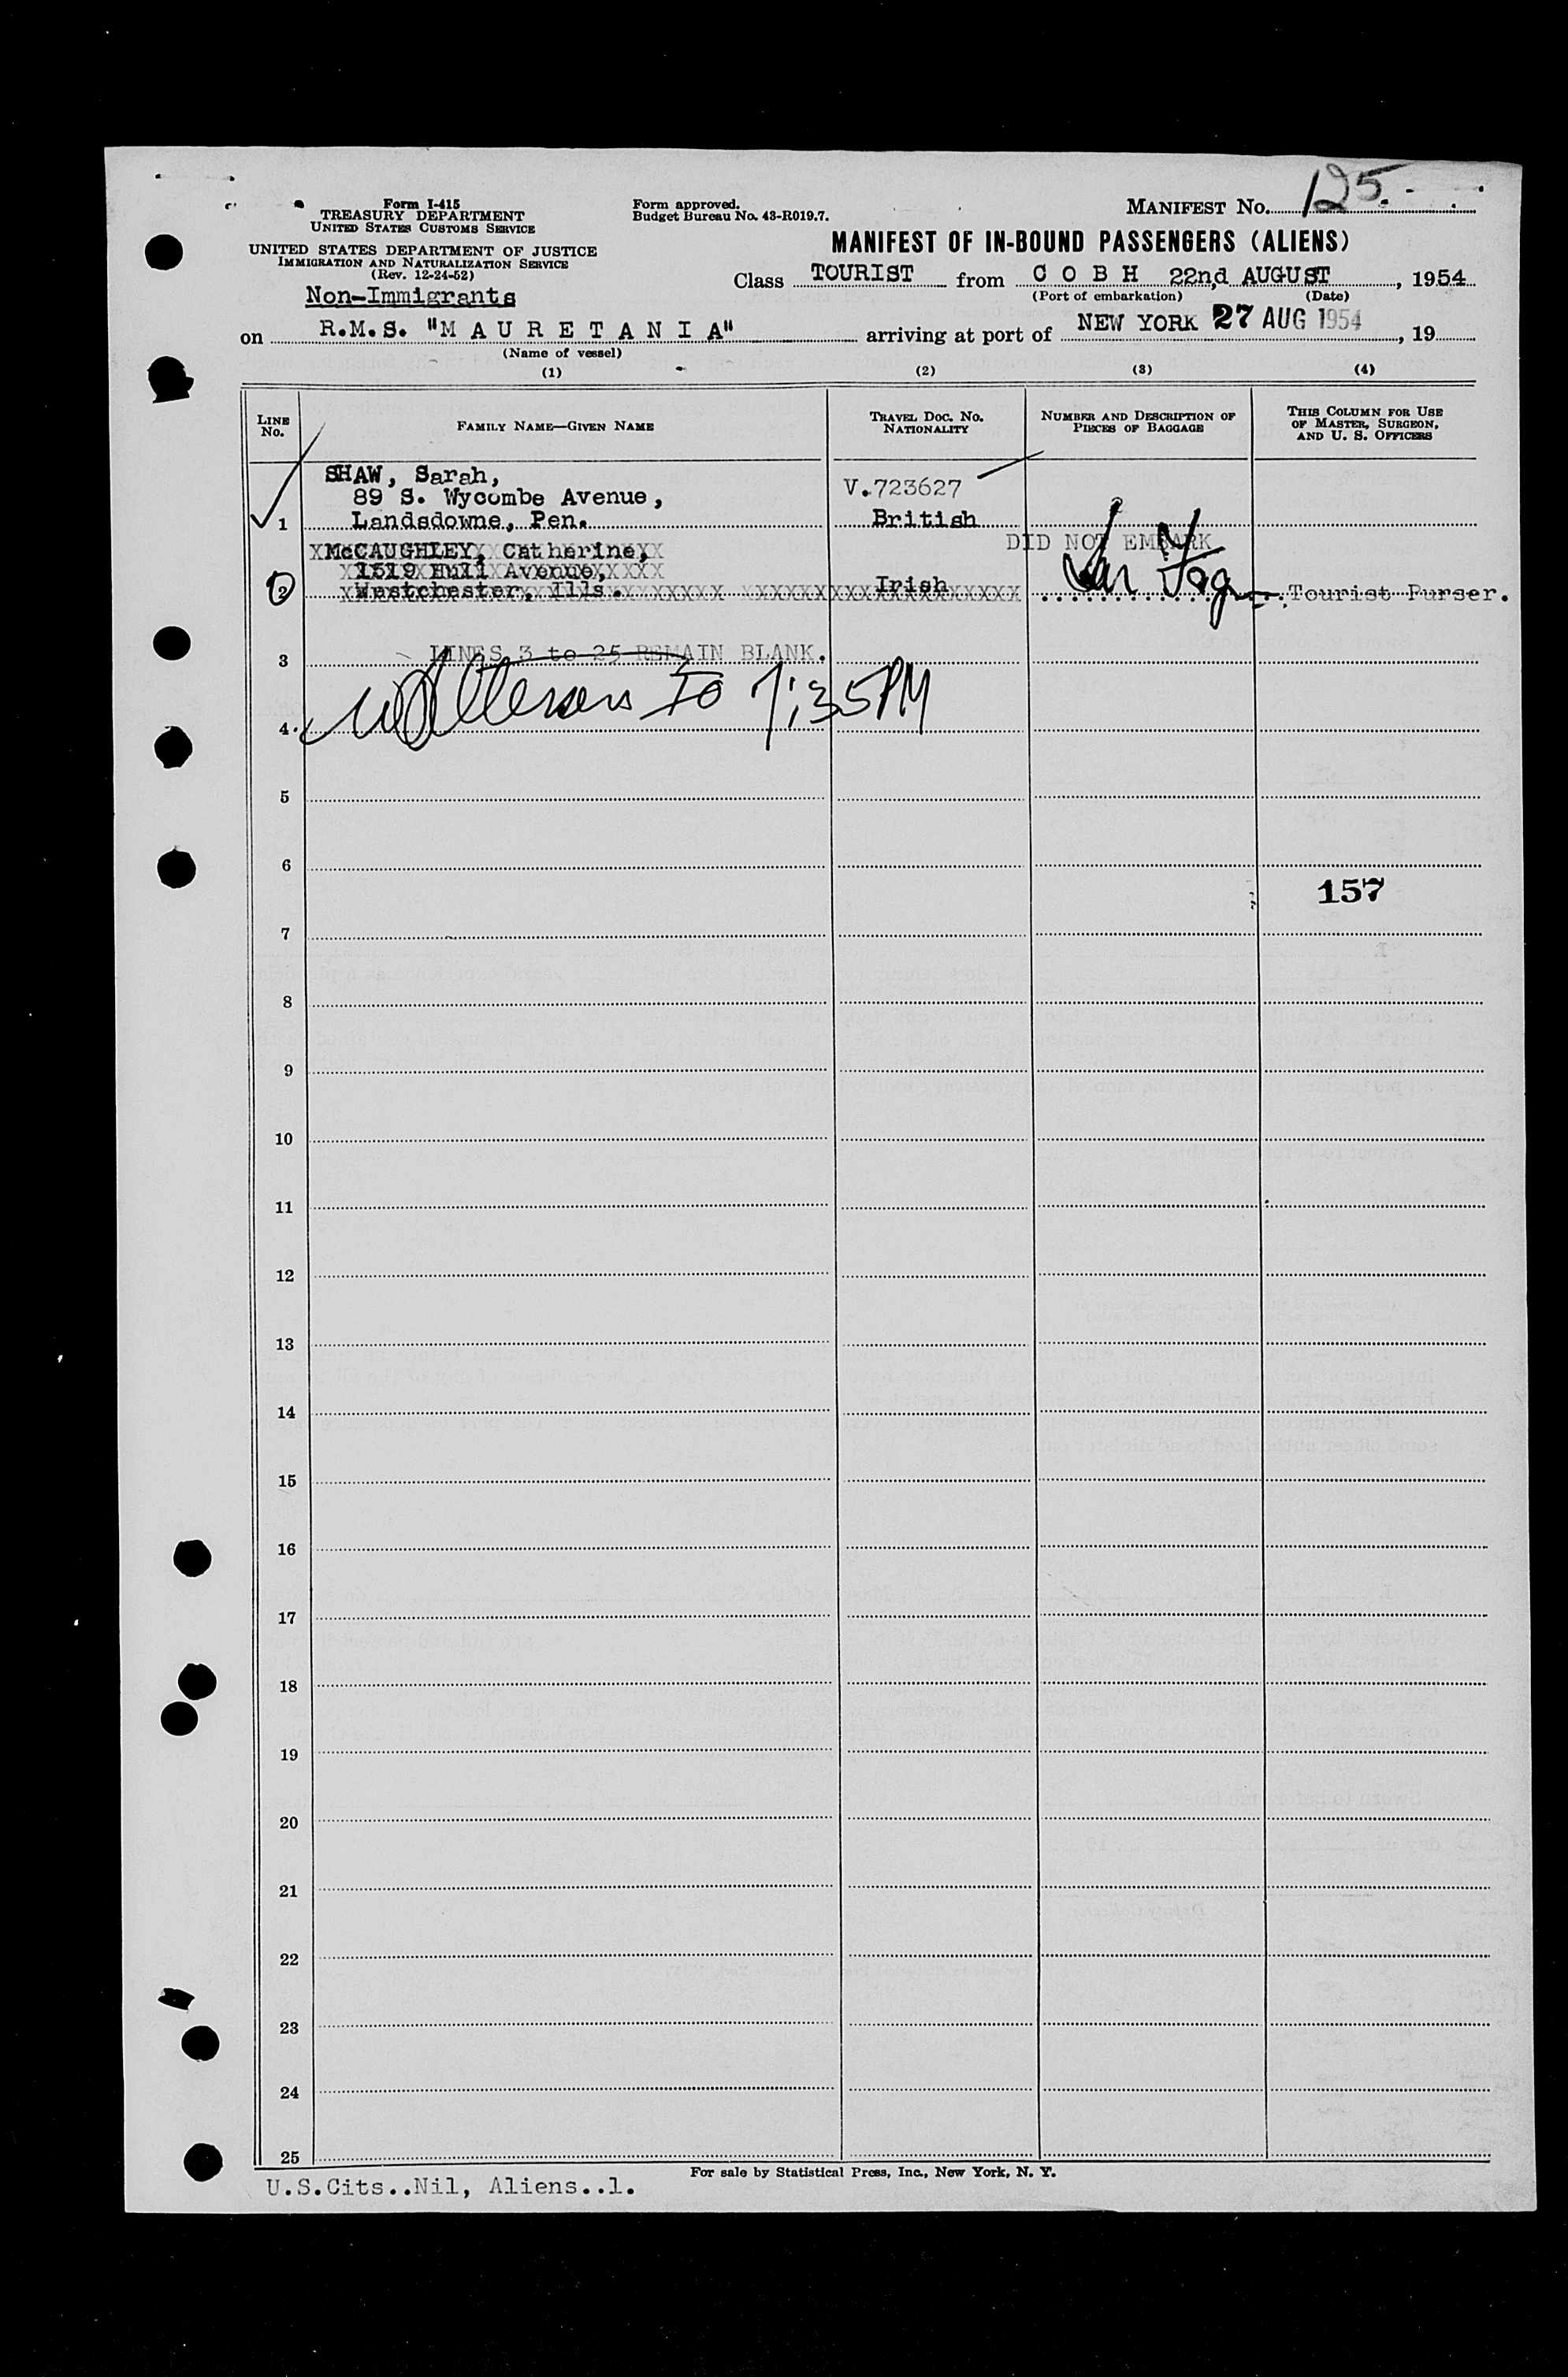 Form I-415
TREASURY DEPARTMENT
UNITED STATES CUSTOMS SERVICE
UNITED STATES DEPARTMENT OF JUSTICE
IMMIGRATION AND NATURALIZATION SERVICE
(Rev. 12-24-52)
Non-Immigrants
Form approved.
Budget Bureau No. 43-R019.7.
MANIFEST No. 125.
MANIFEST OF IN-BOUND PASSENGERS (ALIENS)
Class TOURIST from C O B H 22nd AUGUST, 1954
(Port of embarkation) (Date)
on R.M.S. "M A U R E T A N I A" arriving at port of NEW YORK 27 AUG 1954, 19
(Name of vessel)
(1) (2) (3) (4)
LINE No. FAMILY NAME—GIVEN NAME TRAVEL DOC. NO. NATIONALITY NUMBER AND DESCRIPTION OF PIECES OF BAGGAGE THIS COLUMN FOR USE OF MASTER, SURGEON, AND U. S. OFFICERS
SHAW, Sarah, V.723627
89 S. Wycombe Avenue,
1 Landsdowne, Pen. British
McCAUGHLEY, Catherine, DID NOT EMBARK
1519 Hull Avenue,
2 Westchester, Ills. Irish Tourist Purser.
3 LINES 3 to 25 REMAIN BLANK.
4 7:35PM
5
6
157
7
8
9
10
11
12
13
14
15
16
17
18
19
20
21
22
23
24
25
For sale by Statistical Press, Inc., New York, N. Y.
U.S.Cits..Nil, Aliens..1.